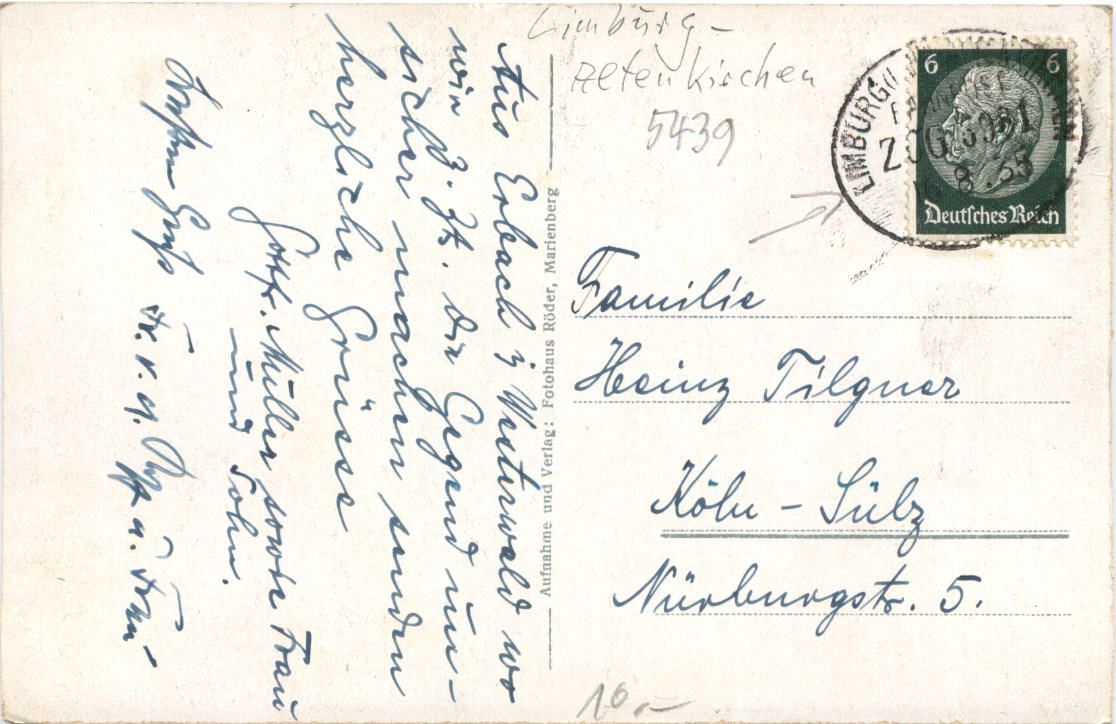 Limburg -
Altenkirchen
5439
LIMBURG
ZUG 3981
8.35
6 6
Deutsches Reich
Aus Erbach i/ Westerwald wo
wir z. Zt. die Gegend un-
sicher machen senden
herzliche Grüsse
Gottf. Müller sowie Frau
und Sohn.
Gruß
u. Frau
Aufnahme und Verlag: Fotohaus Röder, Marienberg
Familie
Heinz Tilgner
Köln - Sülz
Nürburgstr. 5.
10,-